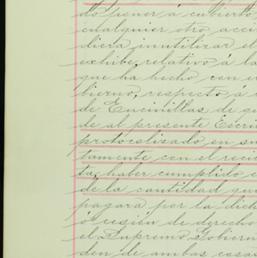 do poner á cubierto
cualquier otro acci
diera inutilizar el
exhibe, relativo á la
que ha hecho con e
bierno, respecto á
de Encinillas de qu
de al presente Escri
protocolizado en su
tamente con el reci
ta, haber cumplido
de la cantidad que
pagará por la dich
ó cesión de derecho
el Supremo Gobiern
den de ambas cosas